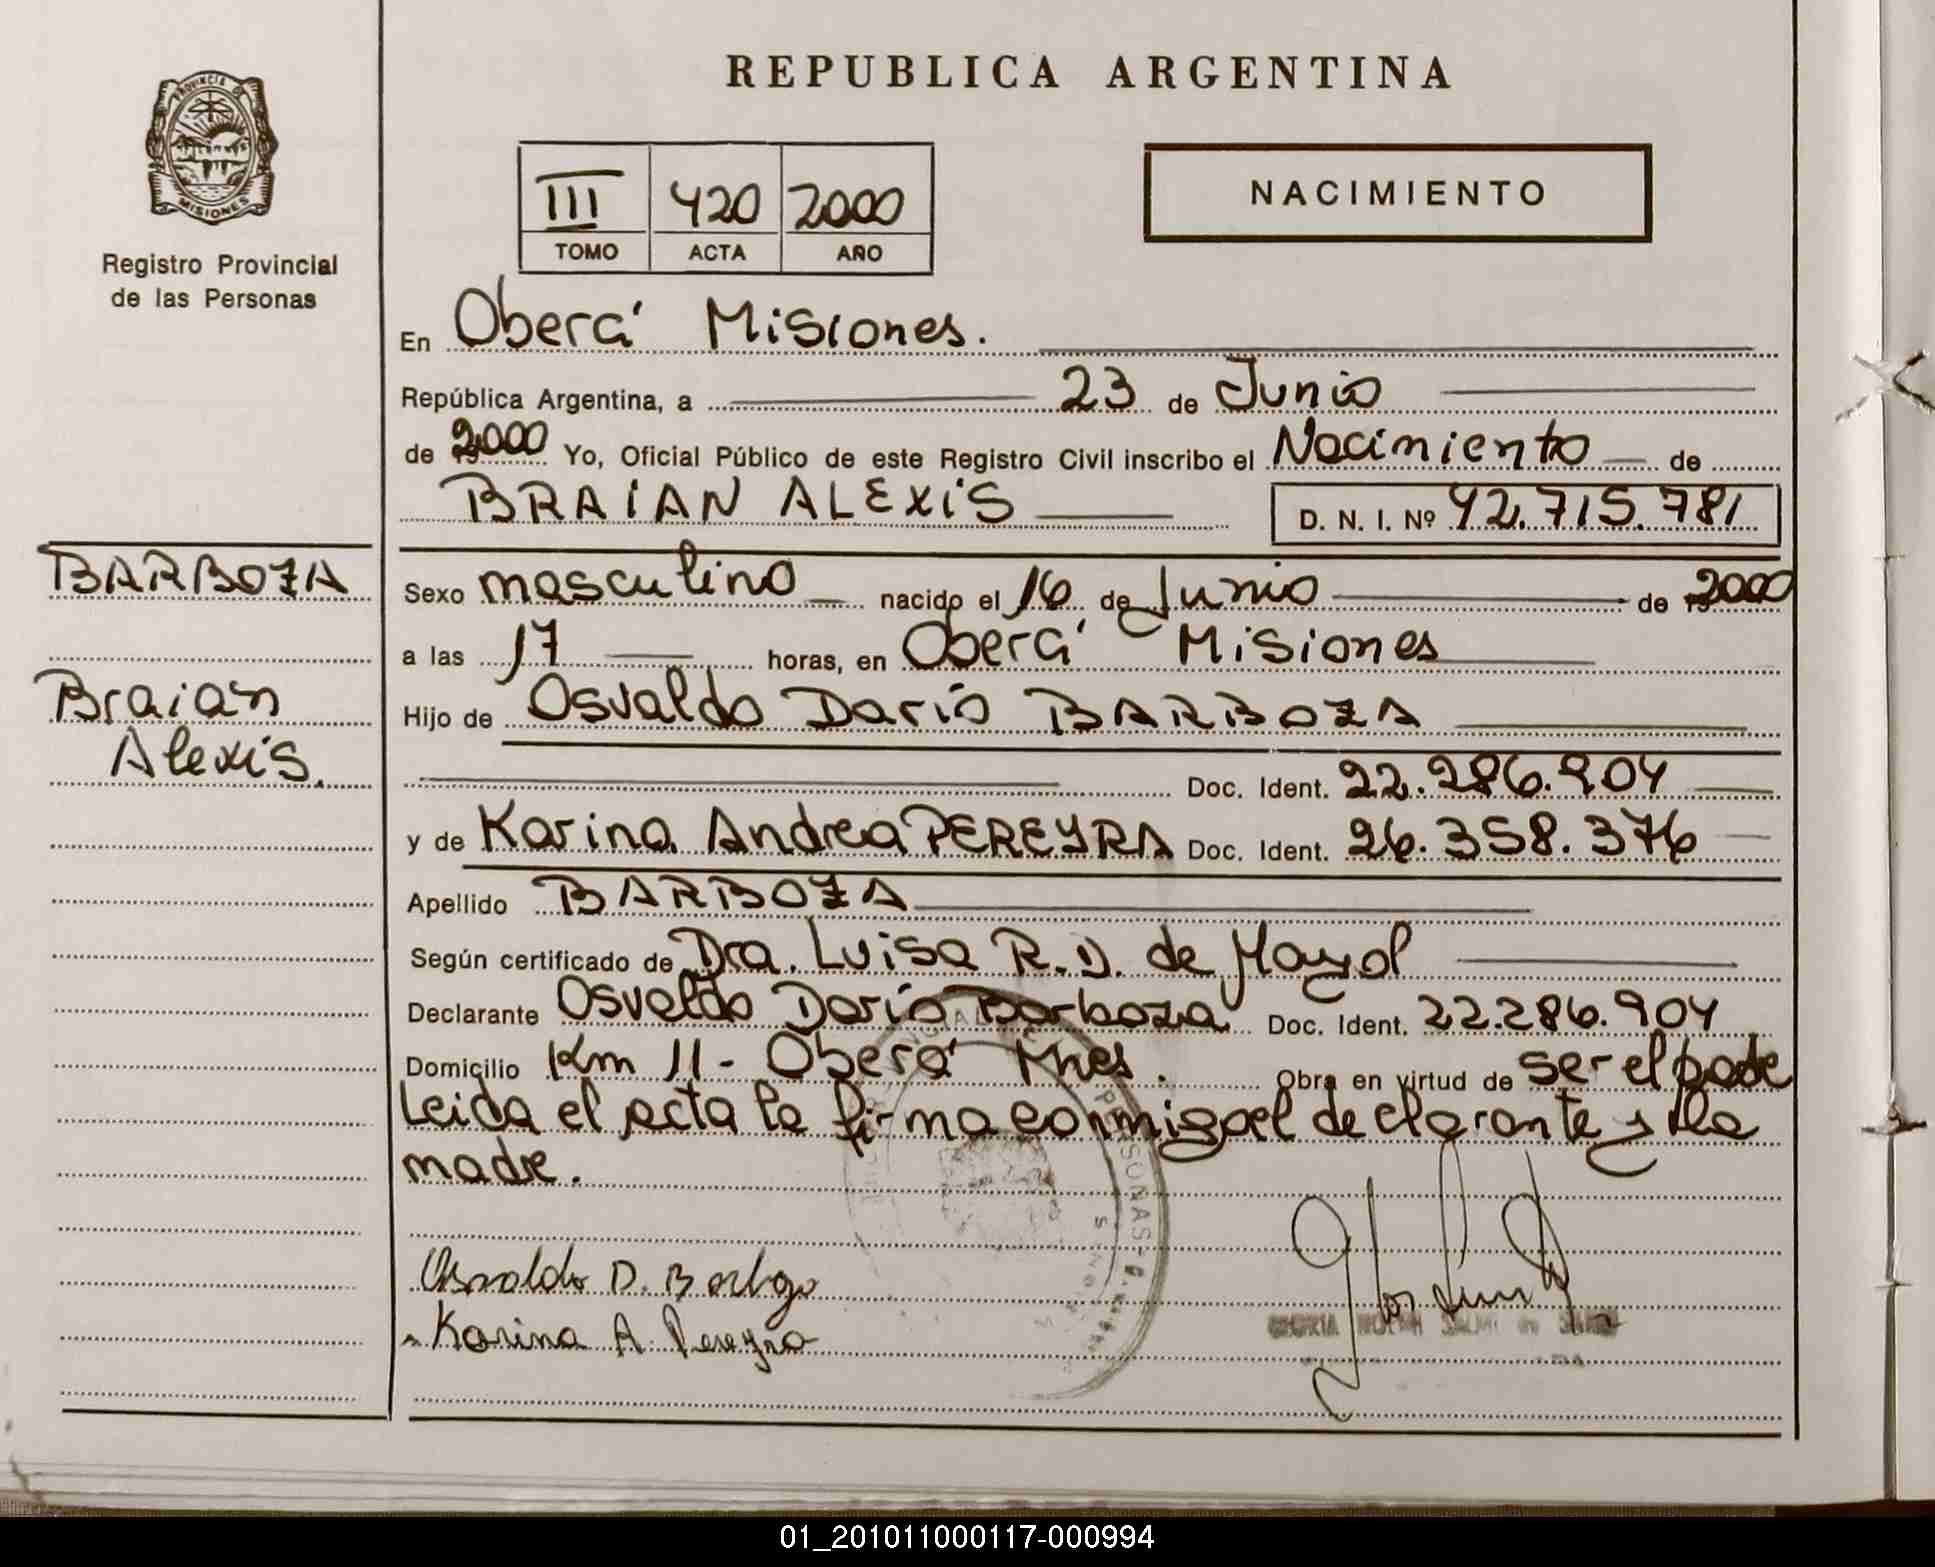 REPUBLICA ARGENTINA
PROVINCIA DE
MISIONES
Registro Provincial
de las Personas
III 420 2000
TOMO ACTA AÑO
NACIMIENTO
En Oberá Misiones.
República Argentina, a 23 de Junio
de 2000 Yo, Oficial Público de este Registro Civil inscribo el Nacimiento de
BRAIAN ALEXIS D. N. I. Nº 42.715.781
BARBOZA
Braian
Alexis.
Sexo masculino nacido el 16 de Junio de 2000
a las 17 horas, en Oberá Misiones
Hijo de Osvaldo Dario BARBOZA
Doc. Ident. 22.286.904
y de Karina Andrea PEREYRA Doc. Ident. 26.358.376
Apellido BARBOZA
Según certificado de Dra. Luisa R. D. de Mayol
Declarante Osvaldo Dario Barboza Doc. Ident. 22.286.904
Domicilio Km 11 - Oberá Mnes. Obra en virtud de ser el padre
Leida el acta la firma conmigo el declarante y la
madre.
Osvaldo D. Barboza
Karina A. Pereyra
01_201011000117-000994